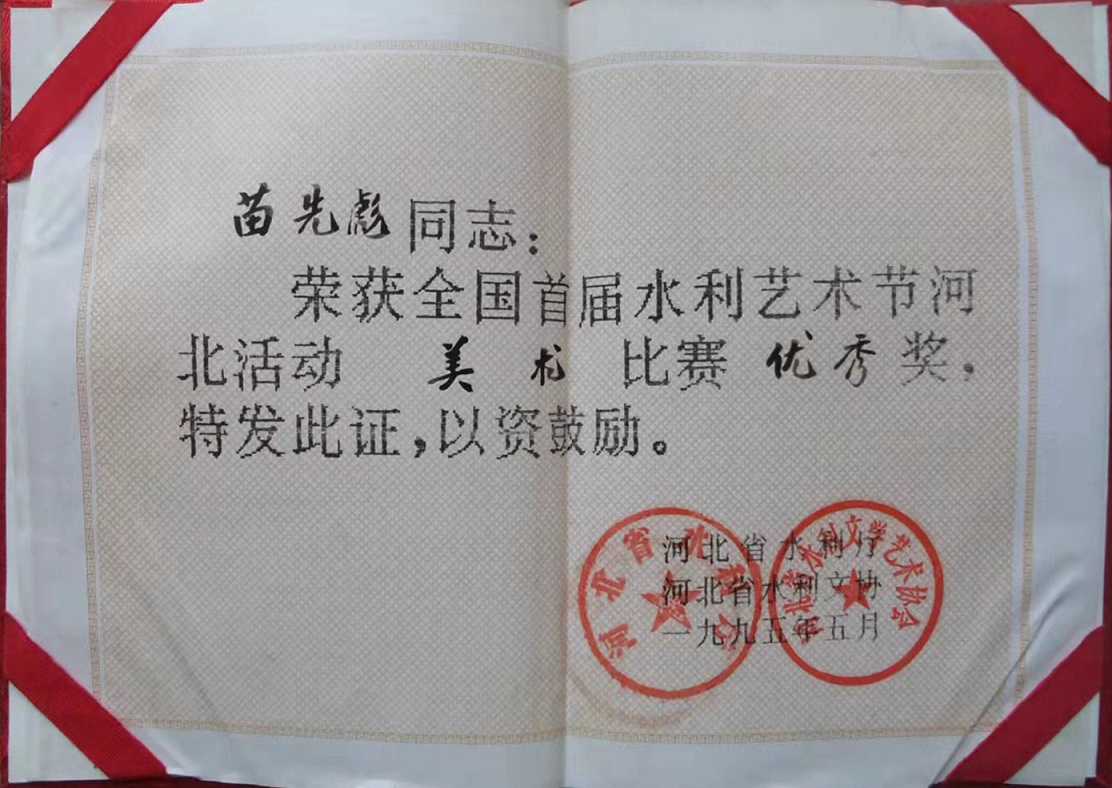 苗先彪同志：
荣获全国首届水利艺术节河
北活动 美术 比赛 优秀 奖，
特发此证，以资鼓励。
河北省水利厅
河北省水利文协
一九九五年五月
河北省水利厅
河北省水利文学艺术协会